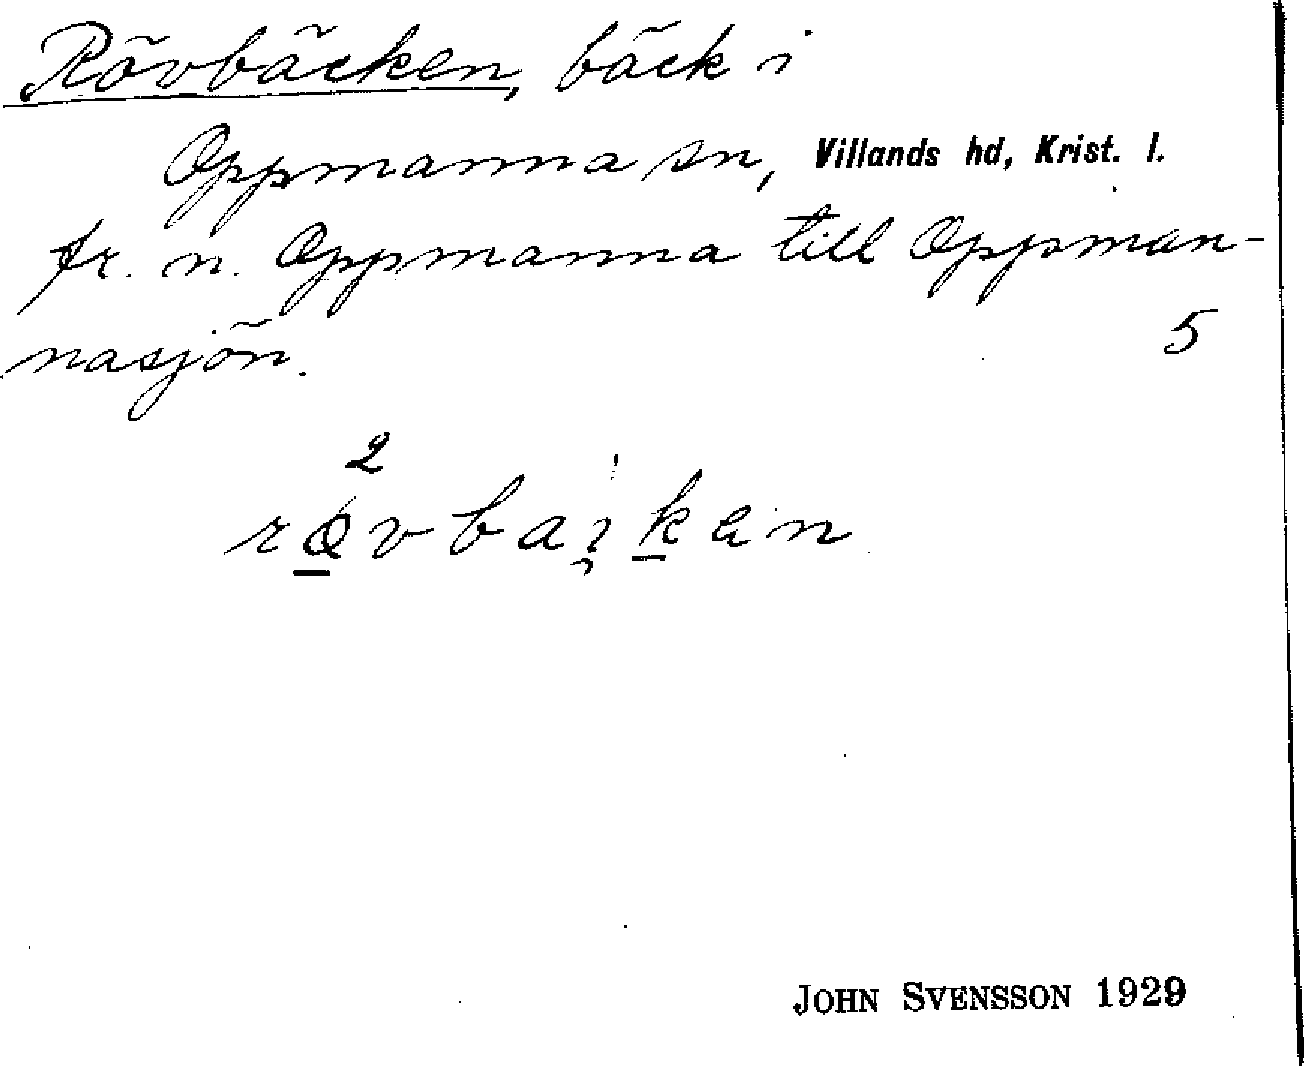 Rövbäcken, bäck i
Oppmanna sn, Villands hd, Krist. l.
fr. n. Oppmanna till Oppman-
nasjön.
5
2
JOHN SVENSSON 1929